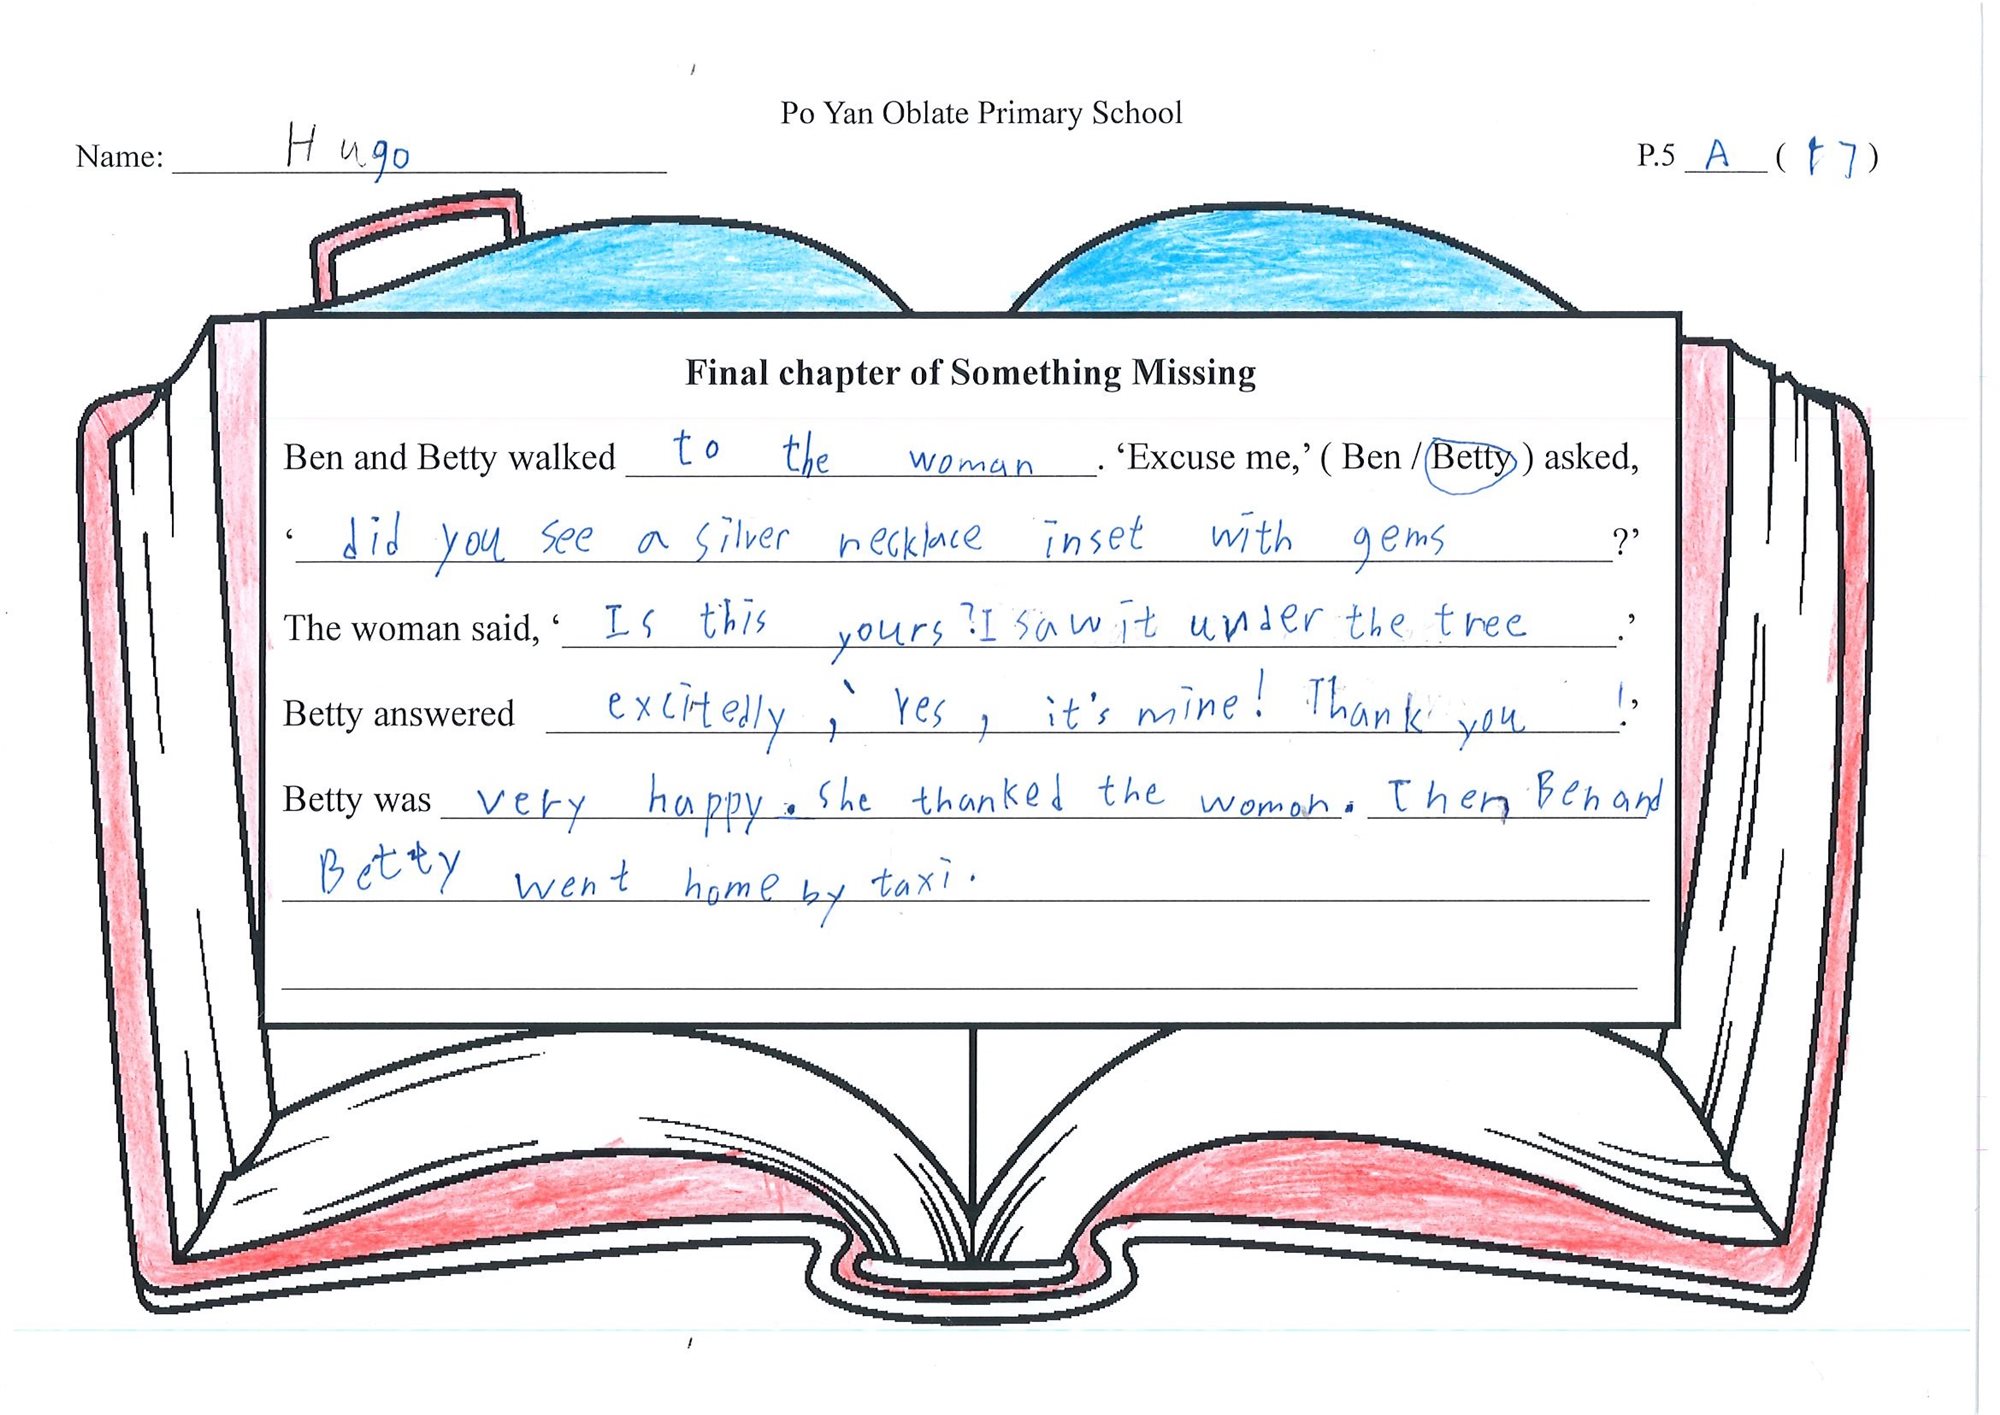 Po Yan Oblate Primary School
Name: Hugo P.5 A (17)
Final chapter of Something Missing
Ben and Betty walked to the woman. ‘Excuse me,’ ( Ben / Betty ) asked,
‘ did you see a silver necklace inset with gems ?’
The woman said, ‘ Is this yours? I saw it under the tree .’
Betty answered excitedly, ‘Yes, it's mine! Thank you !’
Betty was very happy. She thanked the woman. Then Ben and
Betty went home by taxi.